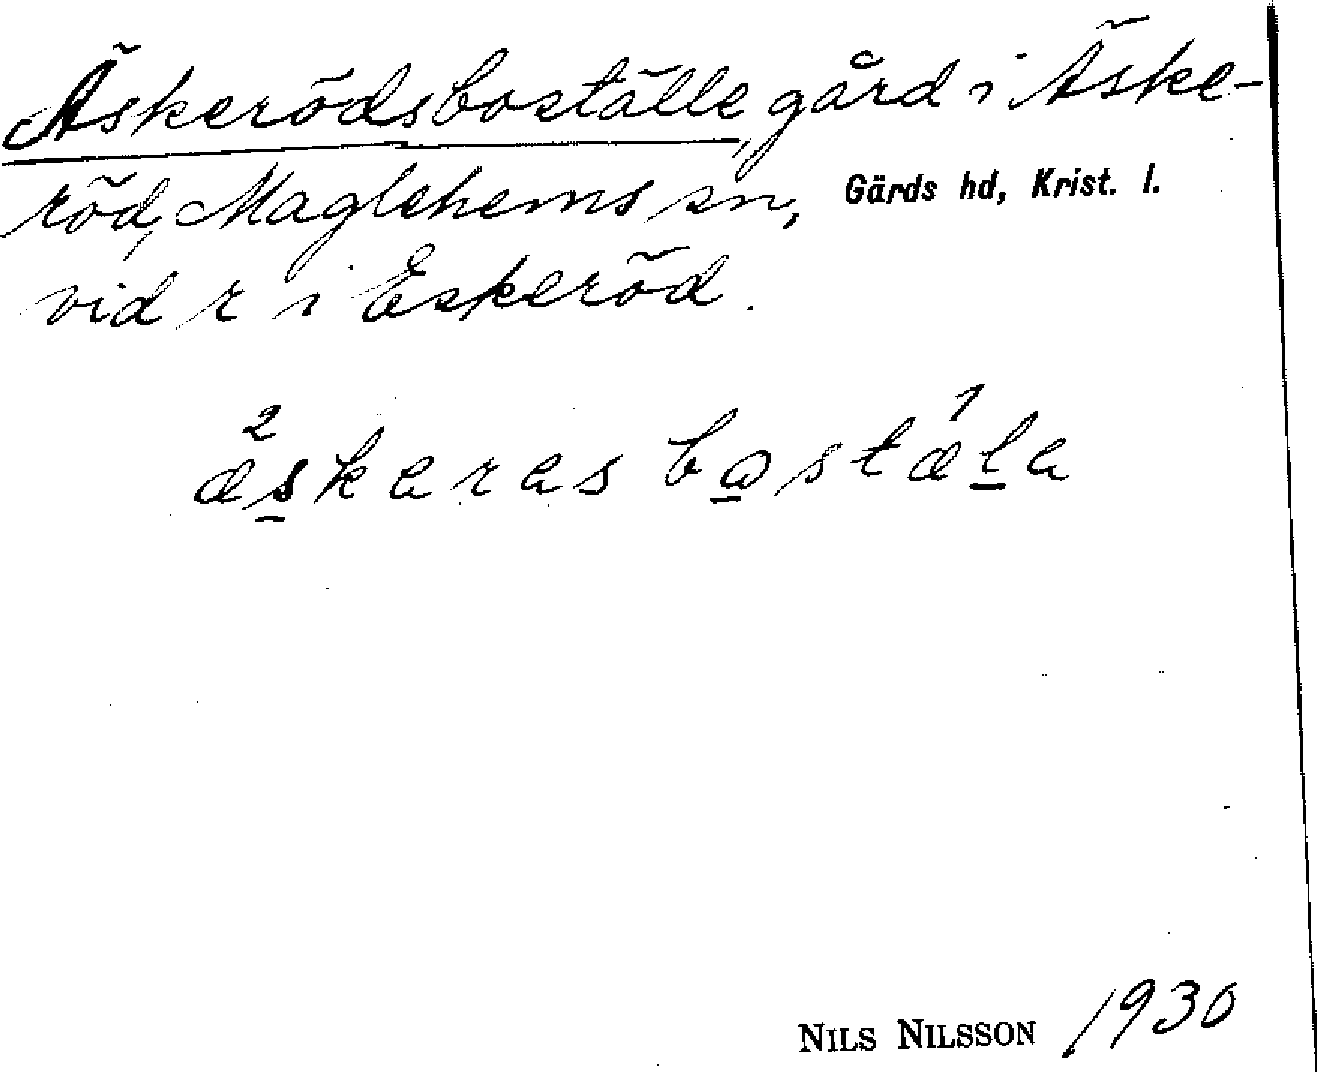 Äskerödsboställe, gård i Äske-
röd, Maglehems sn, Gärds hd, Krist. l.
vid r i Eskeröd.
2 1
æskaras bostæla
NILS NILSSON 1930